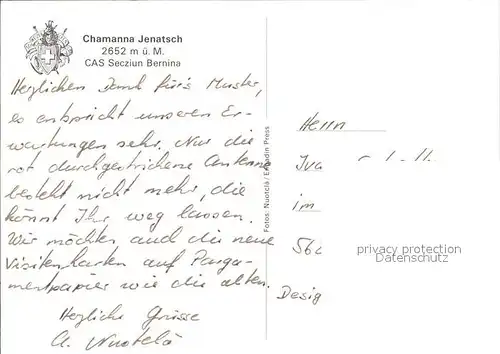 Chamanna Jenatsch
2652 m ü. M.
CAS Secziun Bernina
Herzlichen Dank für's Muster,
es entspricht unseren Er-
wartungen sehr. Nur die
rot durchgestrichene Antenne
besteht nicht mehr, die
könnt Ihr weg lassen.
Wir möchten auch die neue
Visitenkarten auf Perga-
mentpapier wie die alten.
Herzliche Grüsse
A. Nuotclà
Fotos: Nuotclà/Engadin Press
Herrn
im
privacy protection
Datenschutz
Desig